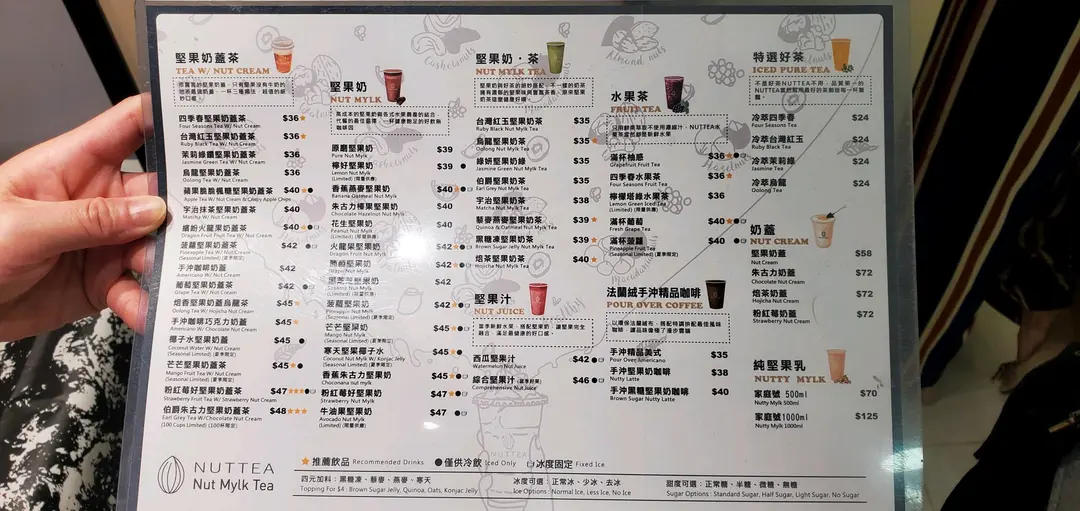 堅果奶蓋茶
TEA W/ NUT CREAM
四季春堅果奶蓋茶 $36★
Four Seasons Tea W/ Nut Cream
台灣紅玉堅果奶蓋茶 $36★
Ruby Black Tea W/ Nut Cream
茉莉綠鑽堅果奶蓋茶 $36
Jasmine Green Tea W/ Nut Cream
烏龍堅果奶蓋茶 $36
Oolong Tea W/ Nut Cream
蘋果脆脆楓糖堅果奶蓋茶 $40★●
Apple Tea W/ Nut Cream & Crispy Apple Chips
宇治抹茶堅果奶蓋茶 $40
Matcha W/ Nut Cream
繽紛火龍果奶蓋茶 $40
Dragon Fruit Tea W/ Nut Cream
菠蘿堅果奶蓋茶 $42
Pineapple Tea W/ Nut Cream
(Seasonal Limited) (夏季限定)
手沖咖啡奶蓋 $42
Americano W/ Nut Cream
葡萄堅果奶蓋茶 $42
Grape Tea W/ Nut Cream
焙香堅果奶蓋烏龍茶 $45★
Oolong Tea W/ Hojicha Nut Cream
手沖咖啡巧克力奶蓋 $45★
Americano W/ Chocolate Nut Cream
椰子水堅果奶蓋 $45 ●
Coconut Water W/ Nut Cream
(Seasonal Limited) (夏季限定)
芒芒堅果奶蓋茶 $45★●
Mango Fruit Tea W/ Nut Cream
(Seasonal Limited) (夏季限定)
粉紅莓好堅果奶蓋茶 $47★★★●▭
Strawberry Fruit Tea W/ Strawberry Nut Cream
伯爵朱古力堅果奶蓋茶 $48★★★
Earl Grey Tea W/Chocolate Nut Cream
(100 Cups Limited) (100杯限定)
堅果奶
NUT MYLK
原磨堅果奶 $39
Pure Nut Mylk
檸好堅果奶 $39 ●
Lemon Nut Mylk
(Limited) (限量供應)
香蕉燕麥堅果奶 $40
Banana Oatmeal Nut Mylk
朱古力榛果堅果奶 $40
Chocolate Hazelnut Nut Mylk
花生堅果奶 $40
Peanut Nut Mylk
(Limited) (限量供應)
火龍果堅果奶 $42★●▭
Dragon Fruit Nut Mylk
葡萄堅果奶 $42★●▭
Grape Nut Mylk
黑芝芝堅果奶 $42
(Limited) (限量供應)
菠蘿堅果奶 $42★●▭
Pineapple Nut Mylk
(Seasonal Limited) (夏季限定)
芒芒堅果奶 $45★●▭
Mango Nut Mylk
(Seasonal Limited) (夏季限定)
寒天堅果椰子水 $45
Coconut Nut Mylk W/ Konjac Jelly
(Seasonal Limited) (夏季限定)
香蕉朱古力堅果奶 $45
Choconana nut Mylk
粉紅莓好堅果奶 $47★●▭
Strawberry Nut Mylk
牛油果堅果奶 $47 ●▭
Avocado Nut Mylk
(Limited) (限量供應)
堅果奶・茶
NUT MYLK TEA
台灣紅玉堅果奶茶 $35
Ruby Black Nut Mylk Tea
烏龍堅果奶茶 $35★
Oolong Nut Mylk Tea
綠妍堅果奶綠 $35
Jasmine Green Nut Mylk Tea
伯爵堅果奶茶 $35
Earl Grey Nut Mylk Tea
宇治堅果奶茶 $38
Matcha Nut Mylk Tea
藜麥燕麥堅果奶茶 $39★
Quinoa & Oatmeal Nut Mylk Tea
黑糖凍堅果奶茶 $39★
Brown Sugar Jelly Nut Mylk Tea
焙茶堅果奶茶 $40★
Hojicha Nut Mylk Tea
堅果汁
NUT JUICE
當季新鮮水果，搭配堅果奶，讓堅果完全融合，滿足最健康的好口感。
西瓜堅果汁 $42●▭
Watermelon Nut Juice
綜合堅果汁(夏季好果) $46●▭
Comprehensive Nut Juice
水果茶
FRUIT TEA
滿杯柚惑 $36★●▭
Grapefruit Fruit Tea
四季春水果茶 $36★
Four Seasons Fruit Tea
檸檬塔綠水果茶 $36
Lemon Green Iced Tea
(Limited) (限量供應)
滿杯葡萄 $40★●▭
Fresh Grape Tea
滿杯菠蘿 $40 ●▭
Pineapple Fruit Tea
(Seasonal Limited) (夏季限定)
法蘭絨手沖精品咖啡
POUR OVER COFFEE
手沖精品美式 $35
Pour Over Americano
手沖堅果奶咖啡 $38
Nutty Latte
手沖黑糖堅果奶咖啡 $40
Brown Sugar Nutty Latte
特選好茶
ICED PURE TEA
冷萃四季春 $24
Four Seasons Tea
冷萃台灣紅玉 $24
Ruby Black Tea
冷萃茉莉綠 $24
Jasmine Green Tea
冷萃烏龍 $24
Oolong Tea
奶蓋
NUT CREAM
堅果奶蓋 $58
Nut Cream
朱古力奶蓋 $72
Chocolate Nut Cream
焙茶奶蓋 $72
Hojicha Nut Cream
粉紅莓奶蓋 $72
Strawberry Nut Cream
純堅果乳
NUTTY MYLK
家庭號 500ml $70
Nutty Mylk 500ml
家庭號1000ml $125
Nutty Mylk 1000ml
NUTTEA
Nut Mylk Tea
★推薦飲品 Recommended Drinks ●僅供冷飲 Iced Only ▭冰度固定 Fixed Ice
四元加料：黑糖凍、藜麥、燕麥、寒天
Topping For $4 : Brown Sugar Jelly, Quinoa, Oats, Konjac Jelly
冰度可選：正常冰、少冰、去冰
Ice Options : Normal Ice, Less Ice, No Ice
甜度可選：正常糖、半糖、微糖、無糖
Sugar Options : Standard Sugar, Half Sugar, Light Sugar, No Sugar